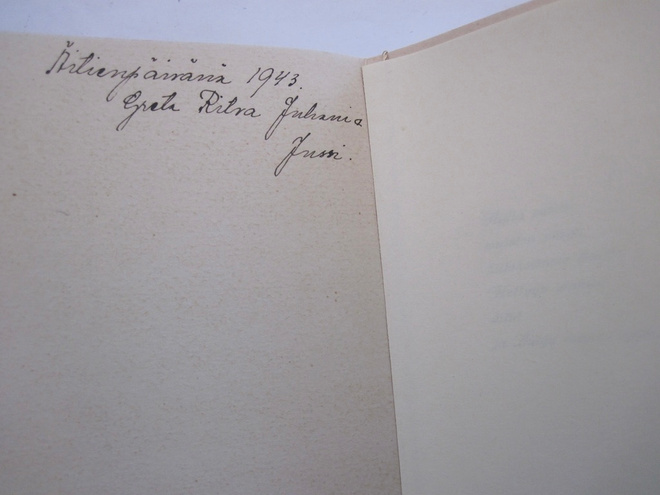 Äitienpäivänä 1943.
Greta Ritva Juhani a
Jussi.